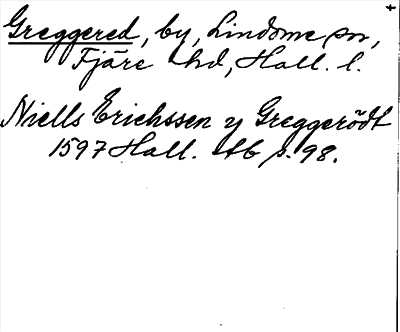 Greggered, by, Lindome sn,
Fjäre hd, Hall. l.
Niells Erichssen y Greggerödt
1597 Hall. Jb s. 98.